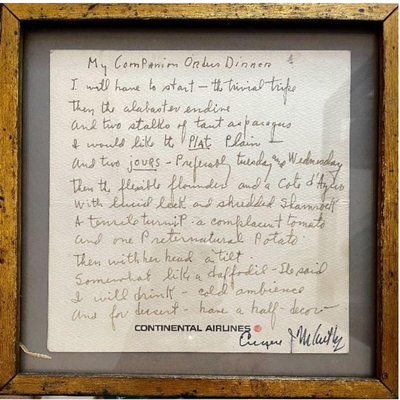 My Companion Orders Dinner
I will have to start – the trivial tripe
then the alabaster endive
And two stalks of taut asparagus
I would like the PLAT Plain –
And two JOURS – Preferably tuesday and Wednesday
Then the flexible flounder and a Coto d'Agneo
With lucid leek and shredded Shamrock
A tensile turnip – a complacent tomato
And one Preternatural Potato.
Then with her head a tilt
Somewhat like a daffodil – She said
I will drink – cold ambience
And for dessert – have a half-decor –
CONTINENTAL AIRLINES
Eugene J McCarthy